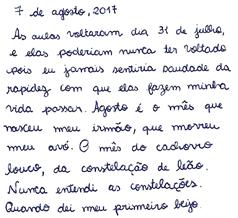 7 de agosto, 2017
As aulas voltaram dia 31 de julho,
e elas poderiam nunca ter voltado
pois eu jamais sentiria saudade da
rapidez com que elas fazem minha
vida passar. Agosto é o mês que
nasceu meu irmão, que morreu
meu avô. O mês do cachorro
louco, da constelação de leão.
Nunca entendi as constelações.
Quando dei meu primeiro beijo.